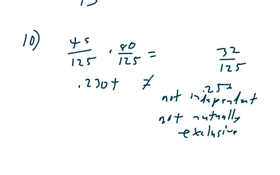 10) 45/125 · 80/125 = 32/125
.2304 ≠ .256
not independent
not mutually
exclusive